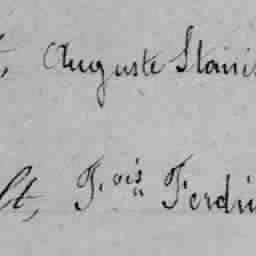 , Auguste Stanis
lt, F.ois Ferdin